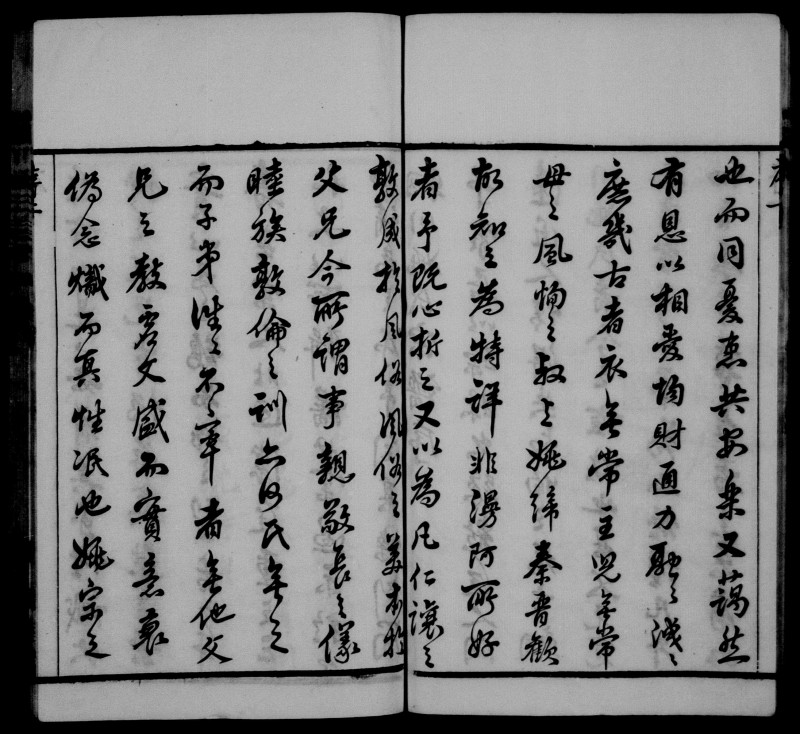 也而同憂患共安樂又藹然
有恩以相愛均財通力融〻洩〻
庶幾古者衣無常主兒無常
母之風 姚締秦晉歡
故知之為特詳非漫阿所好
者予既心折之又以為凡仁讓之
敦成於風俗風俗之美本於
父兄今所謂事親敬長之儀
睦族敦倫之訓亦何氏無之
而子弟往〻不率者無他父
兄之教虛文盛而實意衰
偽念熾而真性泯也姚宗之